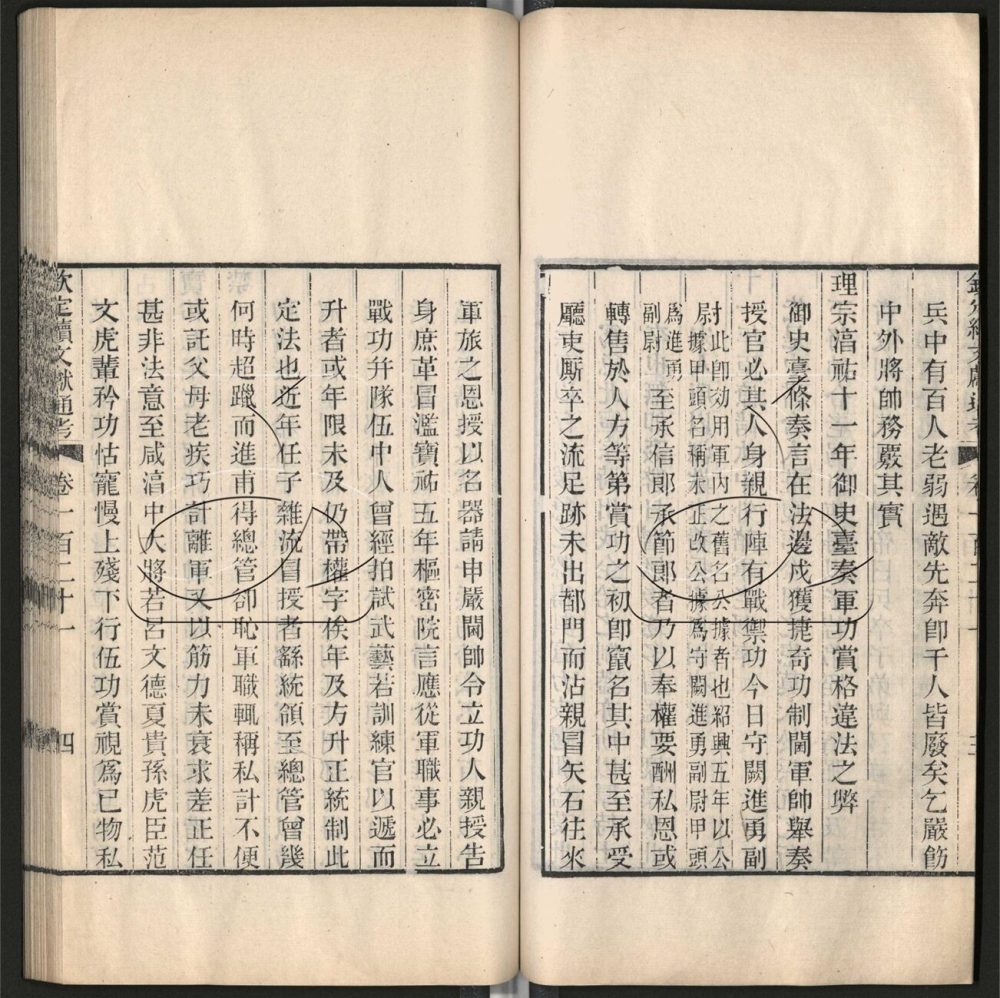 兵中有百人老弱遇敵先奔卽千人皆廢矣乞嚴飭
中外將帥務覈其實
理宗淳祐十一年御史臺奏軍功賞格違法之弊
御史臺條奏言在法邊戍獲捷奇功制閫軍帥舉奏
授官必其人身親行陣有戰禦功今日守闕進勇副
尉此卽効用軍內之舊名公據者也紹興五年以公
據甲頭名稱未正改公據爲守闕進勇副尉甲頭
爲進勇
副尉
至承信郞承節郞者乃以奉權要酬私恩或
轉售於人方等第賞功之初卽竄名其中甚至承受
廳吏厮卒之流足跡未出都門而沾親冒矢石往來
軍旅之恩授以名器請申嚴閫帥令立功人親授告
身庶革冒濫寶祐五年樞密院言應從軍職事必立
戰功幷隊伍中人曾經拍試武藝若訓練官以遞而
升者或年限未及仍帶權字俟年及方升正統制此
定法也近年任子雜流冒授者繇統領至總管曾幾
何時超躐而進甫得總管卻恥軍職輒稱私計不便
或託父母老疾巧計離軍又以筋力未衰求差正任
甚非法意至咸淳中大將若呂文德夏貴孫虎臣范
文虎輩矜功怙寵慢上殘下行伍功賞視爲已物私
欽定續文獻通考 卷一百二十一 四